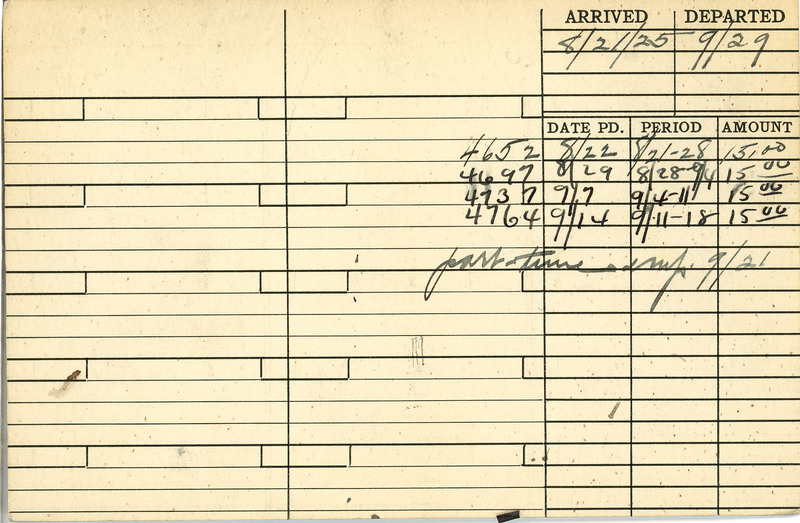 ARRIVED DEPARTED
8/21/25 9/29
DATE PD. PERIOD AMOUNT
4652 8/22 8/21-28 15.00
4697 8/29 8/28-9/4 15.00
4737 9/7 9/4-11 15.00
4764 9/14 9/11-18 15.00
part-time emp. 9/21